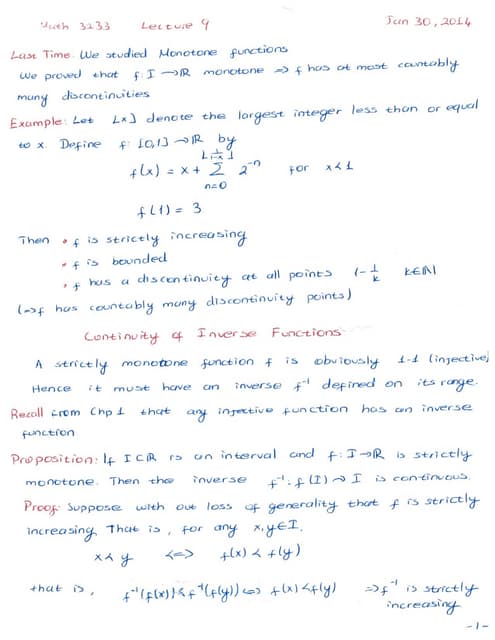 Math 3233 Lecture 9 Jan 30, 2014
Last Time: We studied Monotone functions
We proved that f: I → ℝ monotone ⇒ f has at most countably
many discontinuities
Example: Let ⌊x⌋ denote the largest integer less than or equal
to x. Define f: [0,1] → ℝ by
f(x) = x + Σ_{n=0}^{⌊1/(1-x)⌋} 2^{-n} for x < 1
f(1) = 3
Then • f is strictly increasing
• f is bounded
• f has a discontinuity at all points 1 - 1/k k∈ℕ
(⇒ f has countably many discontinuity points)
Continuity of Inverse Functions
A strictly monotone function f is obviously 1-1 (injective)
Hence it must have an inverse f⁻¹ defined on its range.
Recall from Chp 1 that any injective function has an inverse
function
Proposition: If I ⊂ ℝ is an interval and f: I → ℝ is strictly
monotone. Then the inverse f⁻¹: f(I) → I is continuous.
Proof: Suppose with out loss of generality that f is strictly
increasing. That is, for any x, y ∈ I.
x < y <=> f(x) < f(y)
that is, f⁻¹(f(x)) < f⁻¹(f(y)) <=> f(x) < f(y) ⇒ f⁻¹ is strictly
increasing
-1-